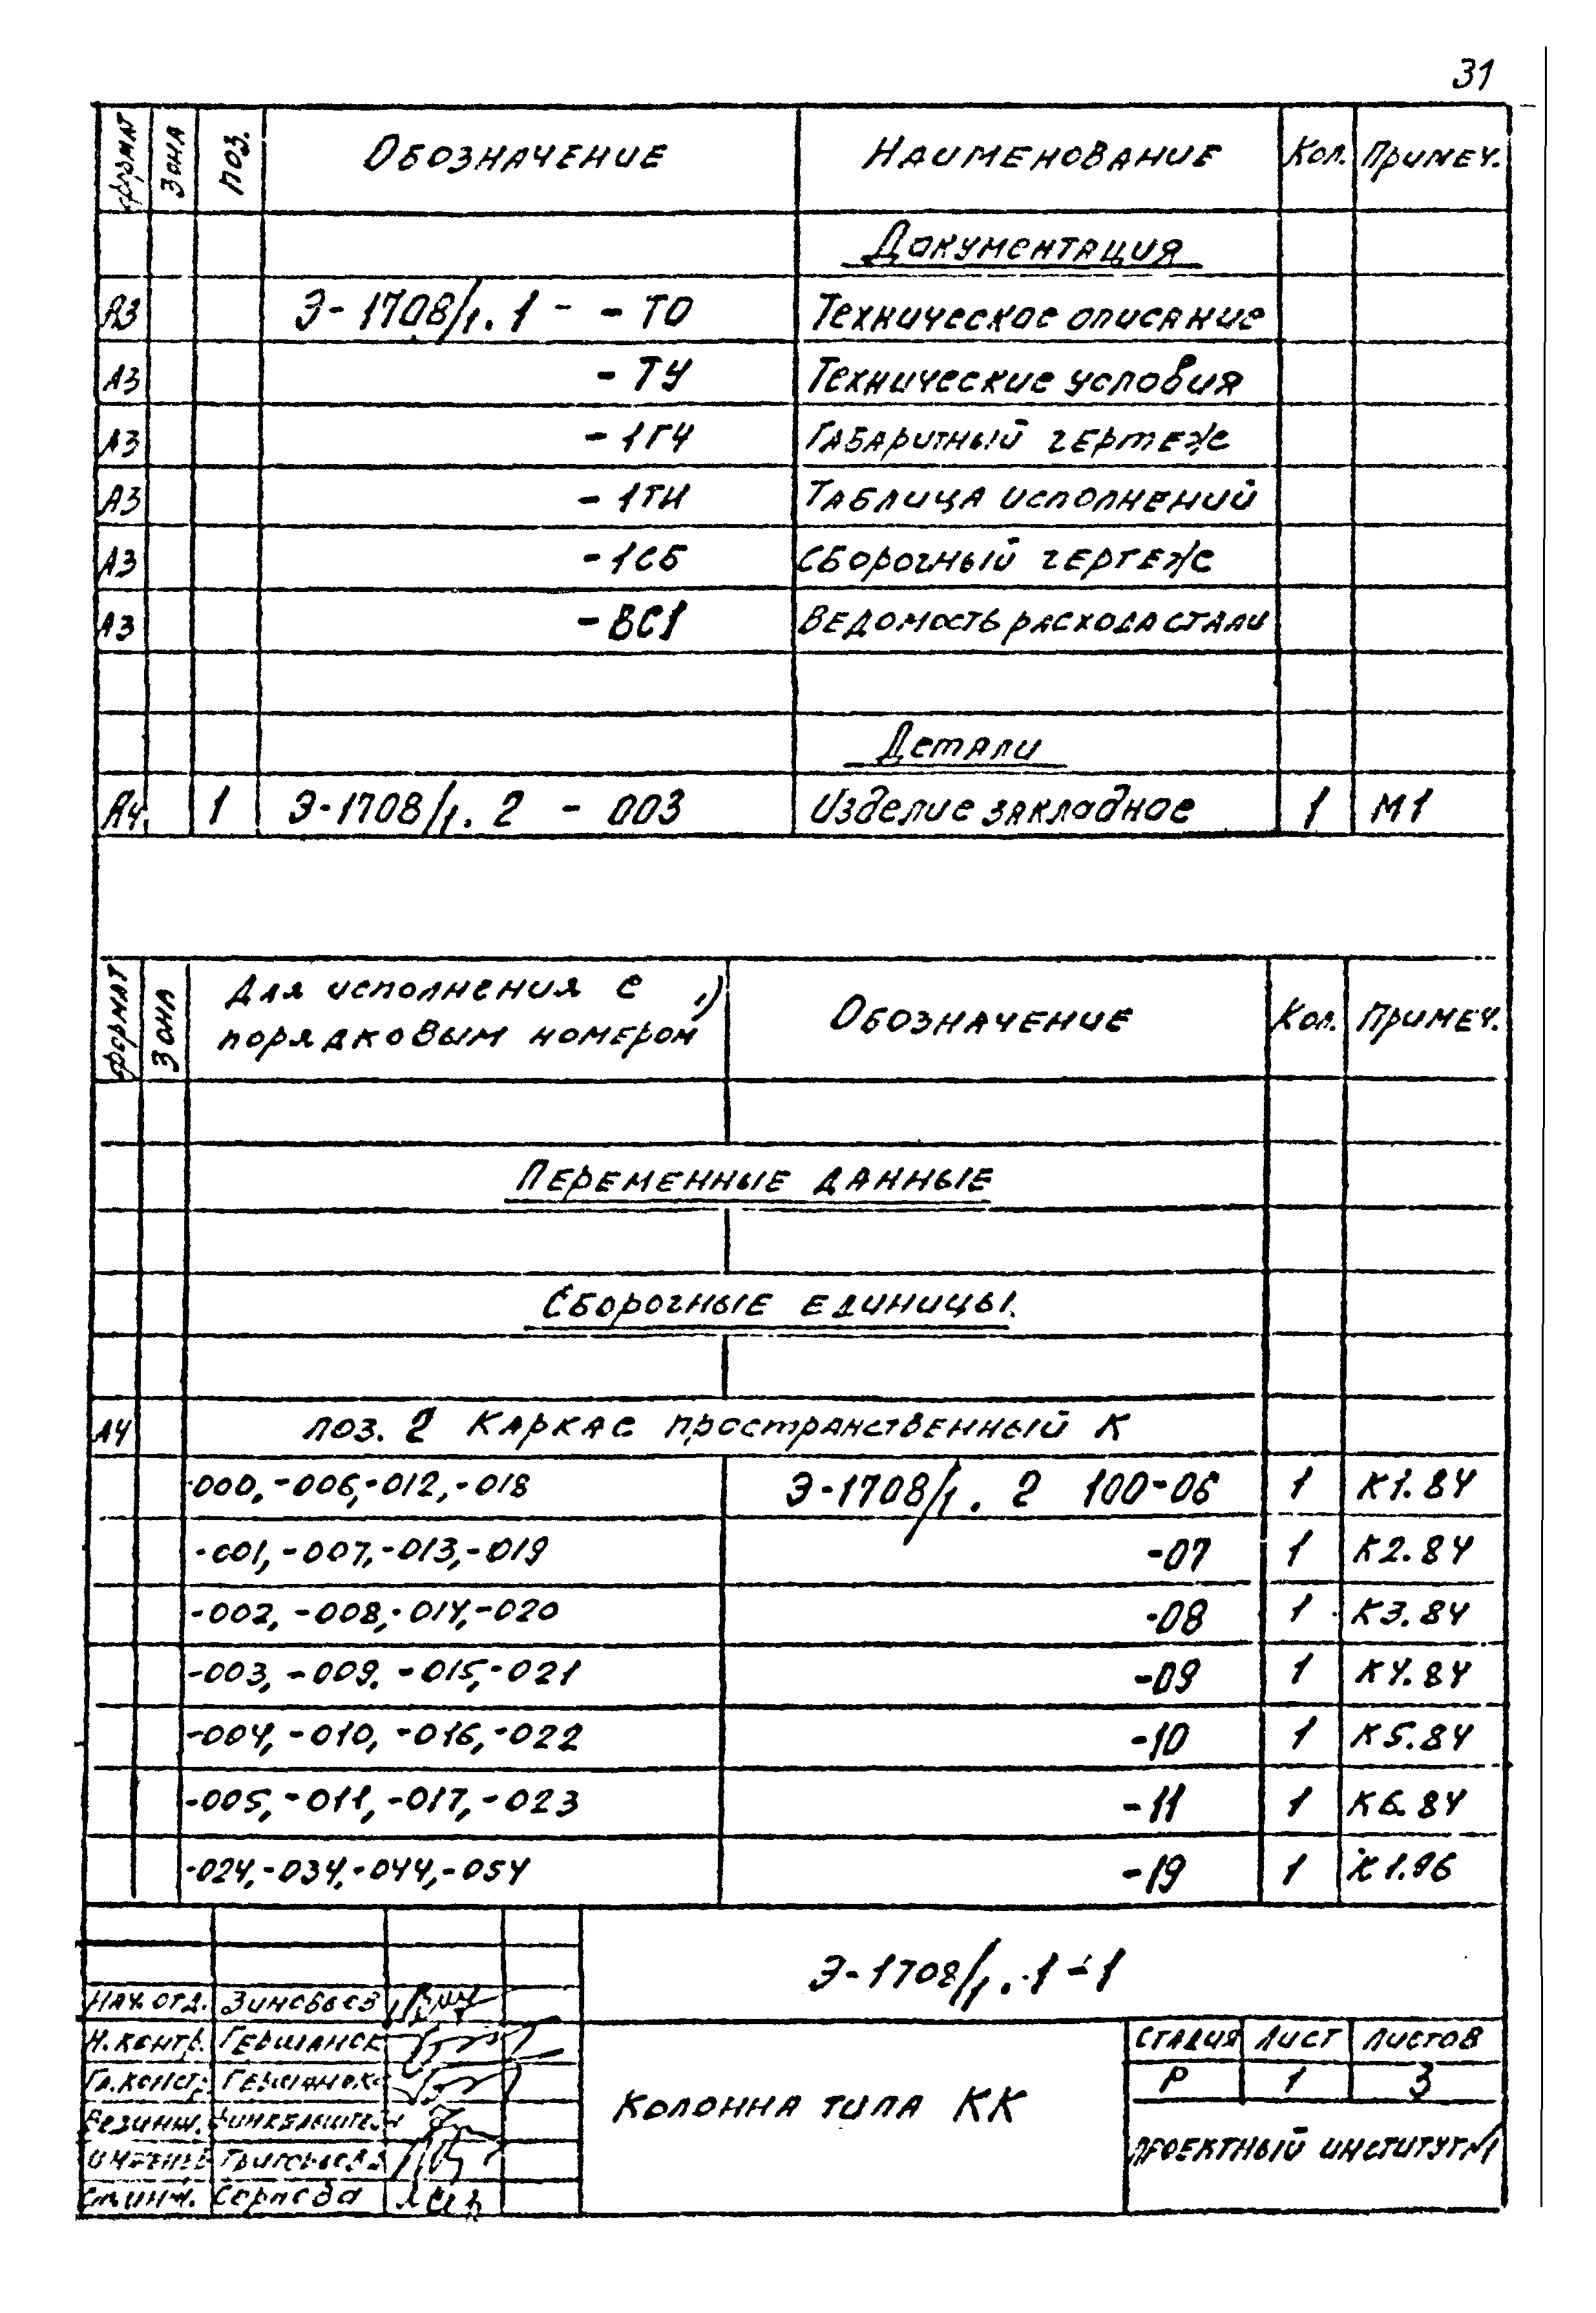 31
Формат Зона Поз. Обозначение Наименование Кол. Примеч.
Документация
А3 Э-1708/1.1 - - ТО Техническое описание
А3 - ТУ Технические условия
А3 - 1ГЧ Габаритный чертеж
А3 - 1ТИ Таблица исполнений
А3 - 1СБ Сборочный чертеж
А3 - ВС1 Ведомость расхода стали
Детали
А4. 1 Э-1708/1.2 - 003 Изделие закладное 1 М1
Формат Зона Для исполнения с порядковым номером 1) Обозначение Кол. Примеч.
Переменные данные
Сборочные единицы.
А4 поз. 2 Каркас пространственный К
-000, -006, -012, -018 Э-1708/1. 2 100-06 1 К1.84
-001, -007, -013, -019 -07 1 К2.84
-002, -008, -014, -020 -08 1 К3.84
-003, -009. -015, -021 -09 1 К4.84
-004, -010, -016, -022 -10 1 К5.84
-005, -011, -017, -023 -11 1 К6.84
-024, -034, -044, -054 -19 1 К1.96
Э-1708/1.1-1
Нач. отд. Зиновьев
Н. контр. Гершанок
Гл. констр.
Колонна типа КК
Стадия Лист Листов
Р 1 3
Проектный институт №1
Ст. инж.